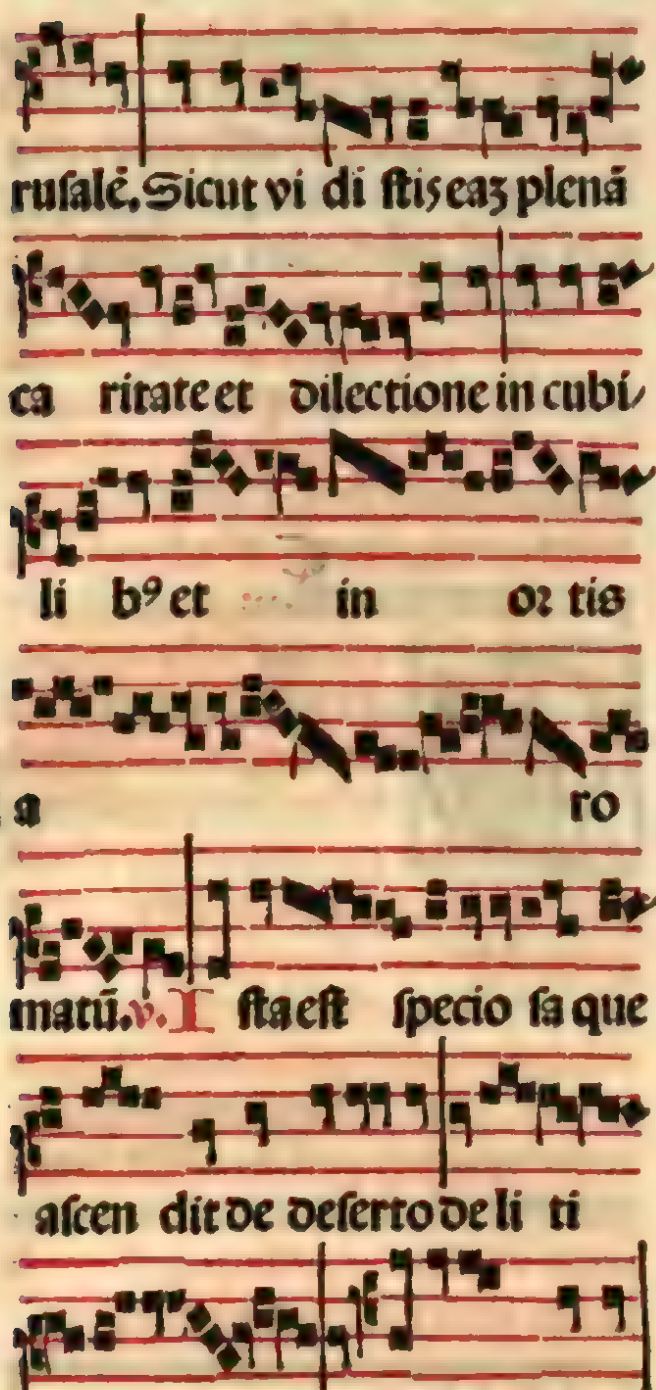 rusalē. Sicut vi di stis eaꝫ plenā
ca ritate et dilectione in cubi
li bꝰ et in oꝛ tis
a ro
matū. v. I sta est specio sa que
ascen dit de deserto de li ti